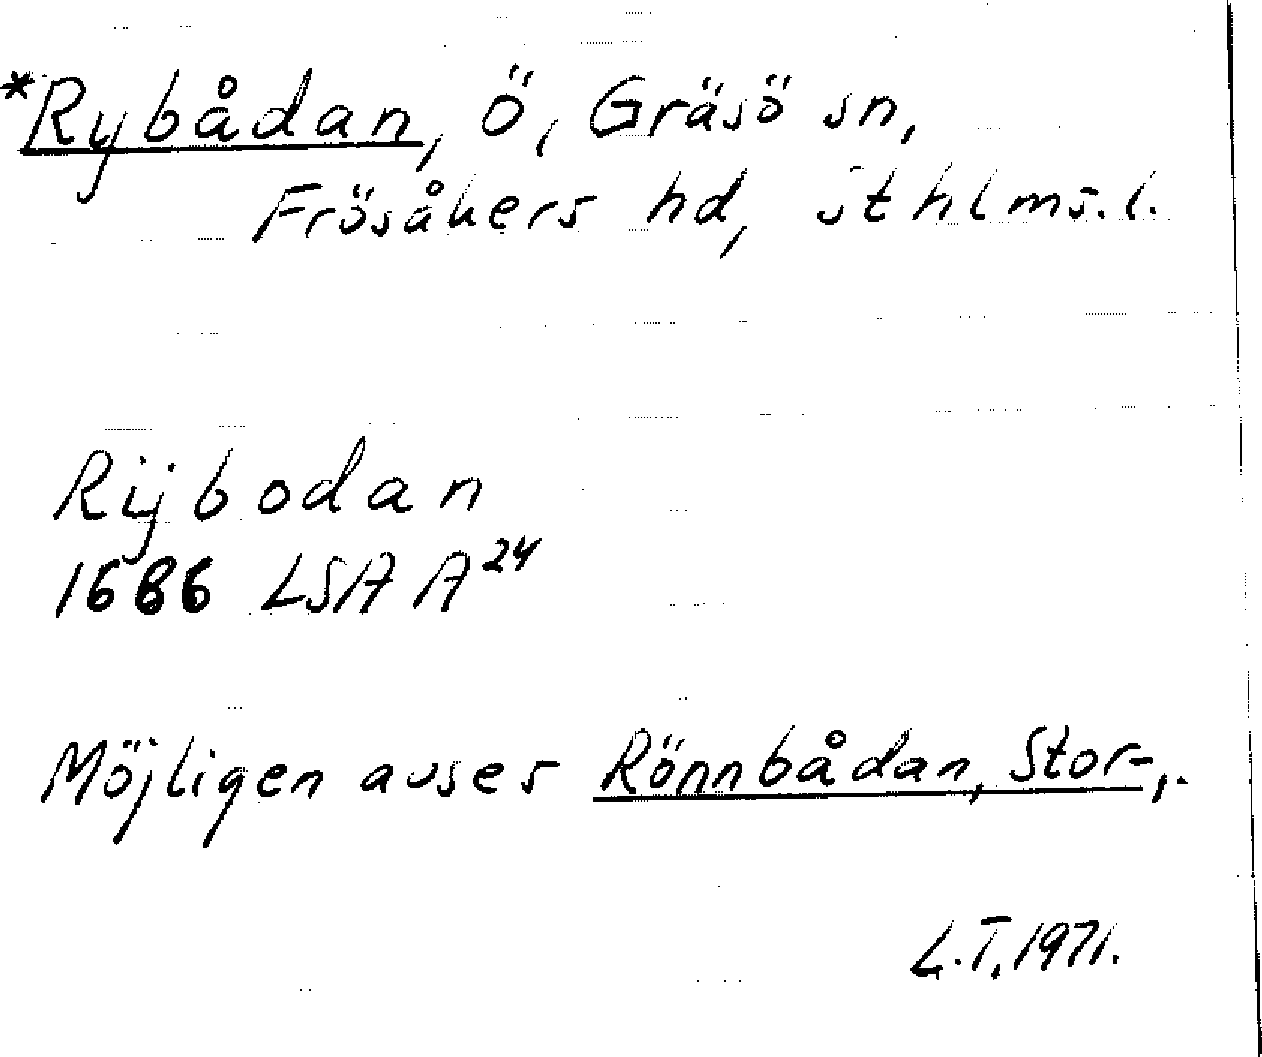 *Rybådan, Ö, Gräsö sn,
Frösåkers hd, Sthlms. l.
Rijbodan
1686 LSA A24
Möjligen avses Rönnbådan, Stor-,.
L.T. 1971.